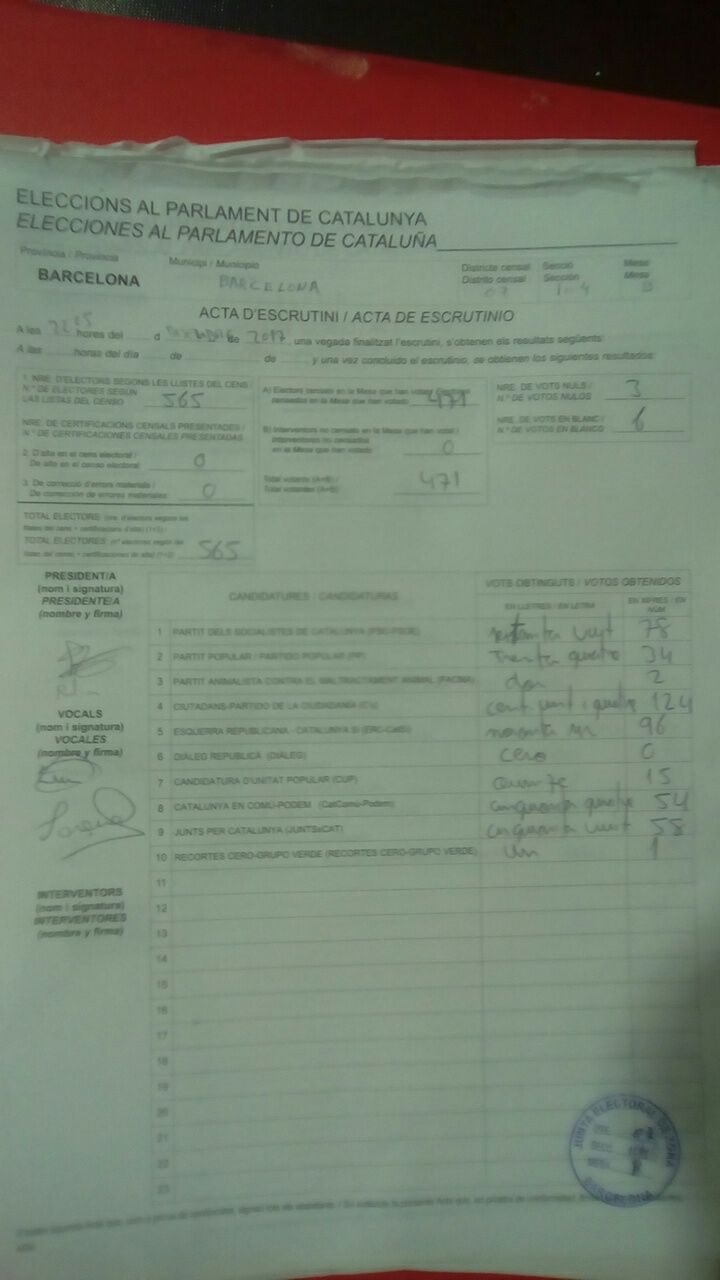 ELECCIONS AL PARLAMENT DE CATALUNYA
ELECCIONES AL PARLAMENTO DE CATALUÑA
Província / Provincia Municipi / Municipio Districte censal Secció Mesa
Distrito censal Sección Mesa
BARCELONA BARCELONA 07 104 B
ACTA D'ESCRUTINI / ACTA DE ESCRUTINIO
A les 2205 hores del d de 2017, una vegada finalitzat l'escrutini, s'obtenen els resultats següents:
A las horas del día de de y una vez concluido el escrutinio, se obtienen los siguientes resultados:
1. NRE. D'ELECTORS SEGONS LES LLISTES DEL CENS /
N.º DE ELECTORES SEGÚN
LAS LISTAS DEL CENSO 565
NRE. DE CERTIFICACIONS CENSALS PRESENTADES /
N.º DE CERTIFICACIONES CENSALES PRESENTADAS
2. D'alta en el cens electoral /
De alta en el censo electoral 0
3. De correcció d'errors materials /
De corrección de errores materiales 0
TOTAL ELECTORS
TOTAL ELECTORES 565
A) Electors censats en la Mesa que han votat / Electores
censados en la Mesa que han votado 471
B) Interventors no censats en la Mesa que han votat /
Interventores no censados
en la Mesa que han votado 0
Total votants (A+B) /
Total votantes (A+B) 471
NRE. DE VOTS NULS /
N.º DE VOTOS NULOS 3
NRE. DE VOTS EN BLANC /
N.º DE VOTOS EN BLANCO 6
PRESIDENT/A
(nom i signatura)
PRESIDENTE/A
(nombre y firma)
VOCALS
(nom i signatura)
VOCALES
(nombre y firma)
INTERVENTORS
(nom i signatura)
INTERVENTORES
(nombre y firma)
CANDIDATURES / CANDIDATURAS VOTS OBTINGUTS / VOTOS OBTENIDOS
EN LLETRES / EN LETRA EN XIFRES / EN NÚM
1 PARTIT DELS SOCIALISTES DE CATALUNYA (PSC-PSOE) setanta vuyt 78
2 PARTIT POPULAR / PARTIDO POPULAR (PP) Trenta quatre 34
3 PARTIT ANIMALISTA CONTRA EL MALTRACTAMENT ANIMAL (PACMA) dos 2
4 CIUTADANS-PARTIDO DE LA CIUDADANÍA (C's) cent vint i quatre 124
5 ESQUERRA REPUBLICANA - CATALUNYA SÍ (ERC-CatSí) noranta sis 96
6 DIÀLEG REPUBLICÀ (DIÀLEG) cero 0
7 CANDIDATURA D'UNITAT POPULAR (CUP) 15
8 CATALUNYA EN COMÚ-PODEM (CatComú-Podem) cinquanta quatre 54
9 JUNTS PER CATALUNYA (JUNTSxCAT) cinquanta vuit 58
10 RECORTES CERO-GRUPO VERDE (RECORTES CERO-GRUPO VERDE) un 1
11
12
13
14
15
16
17
18
19
20
21
22
23
JUNTA ELECTORAL DE ZONA
BARCELONA